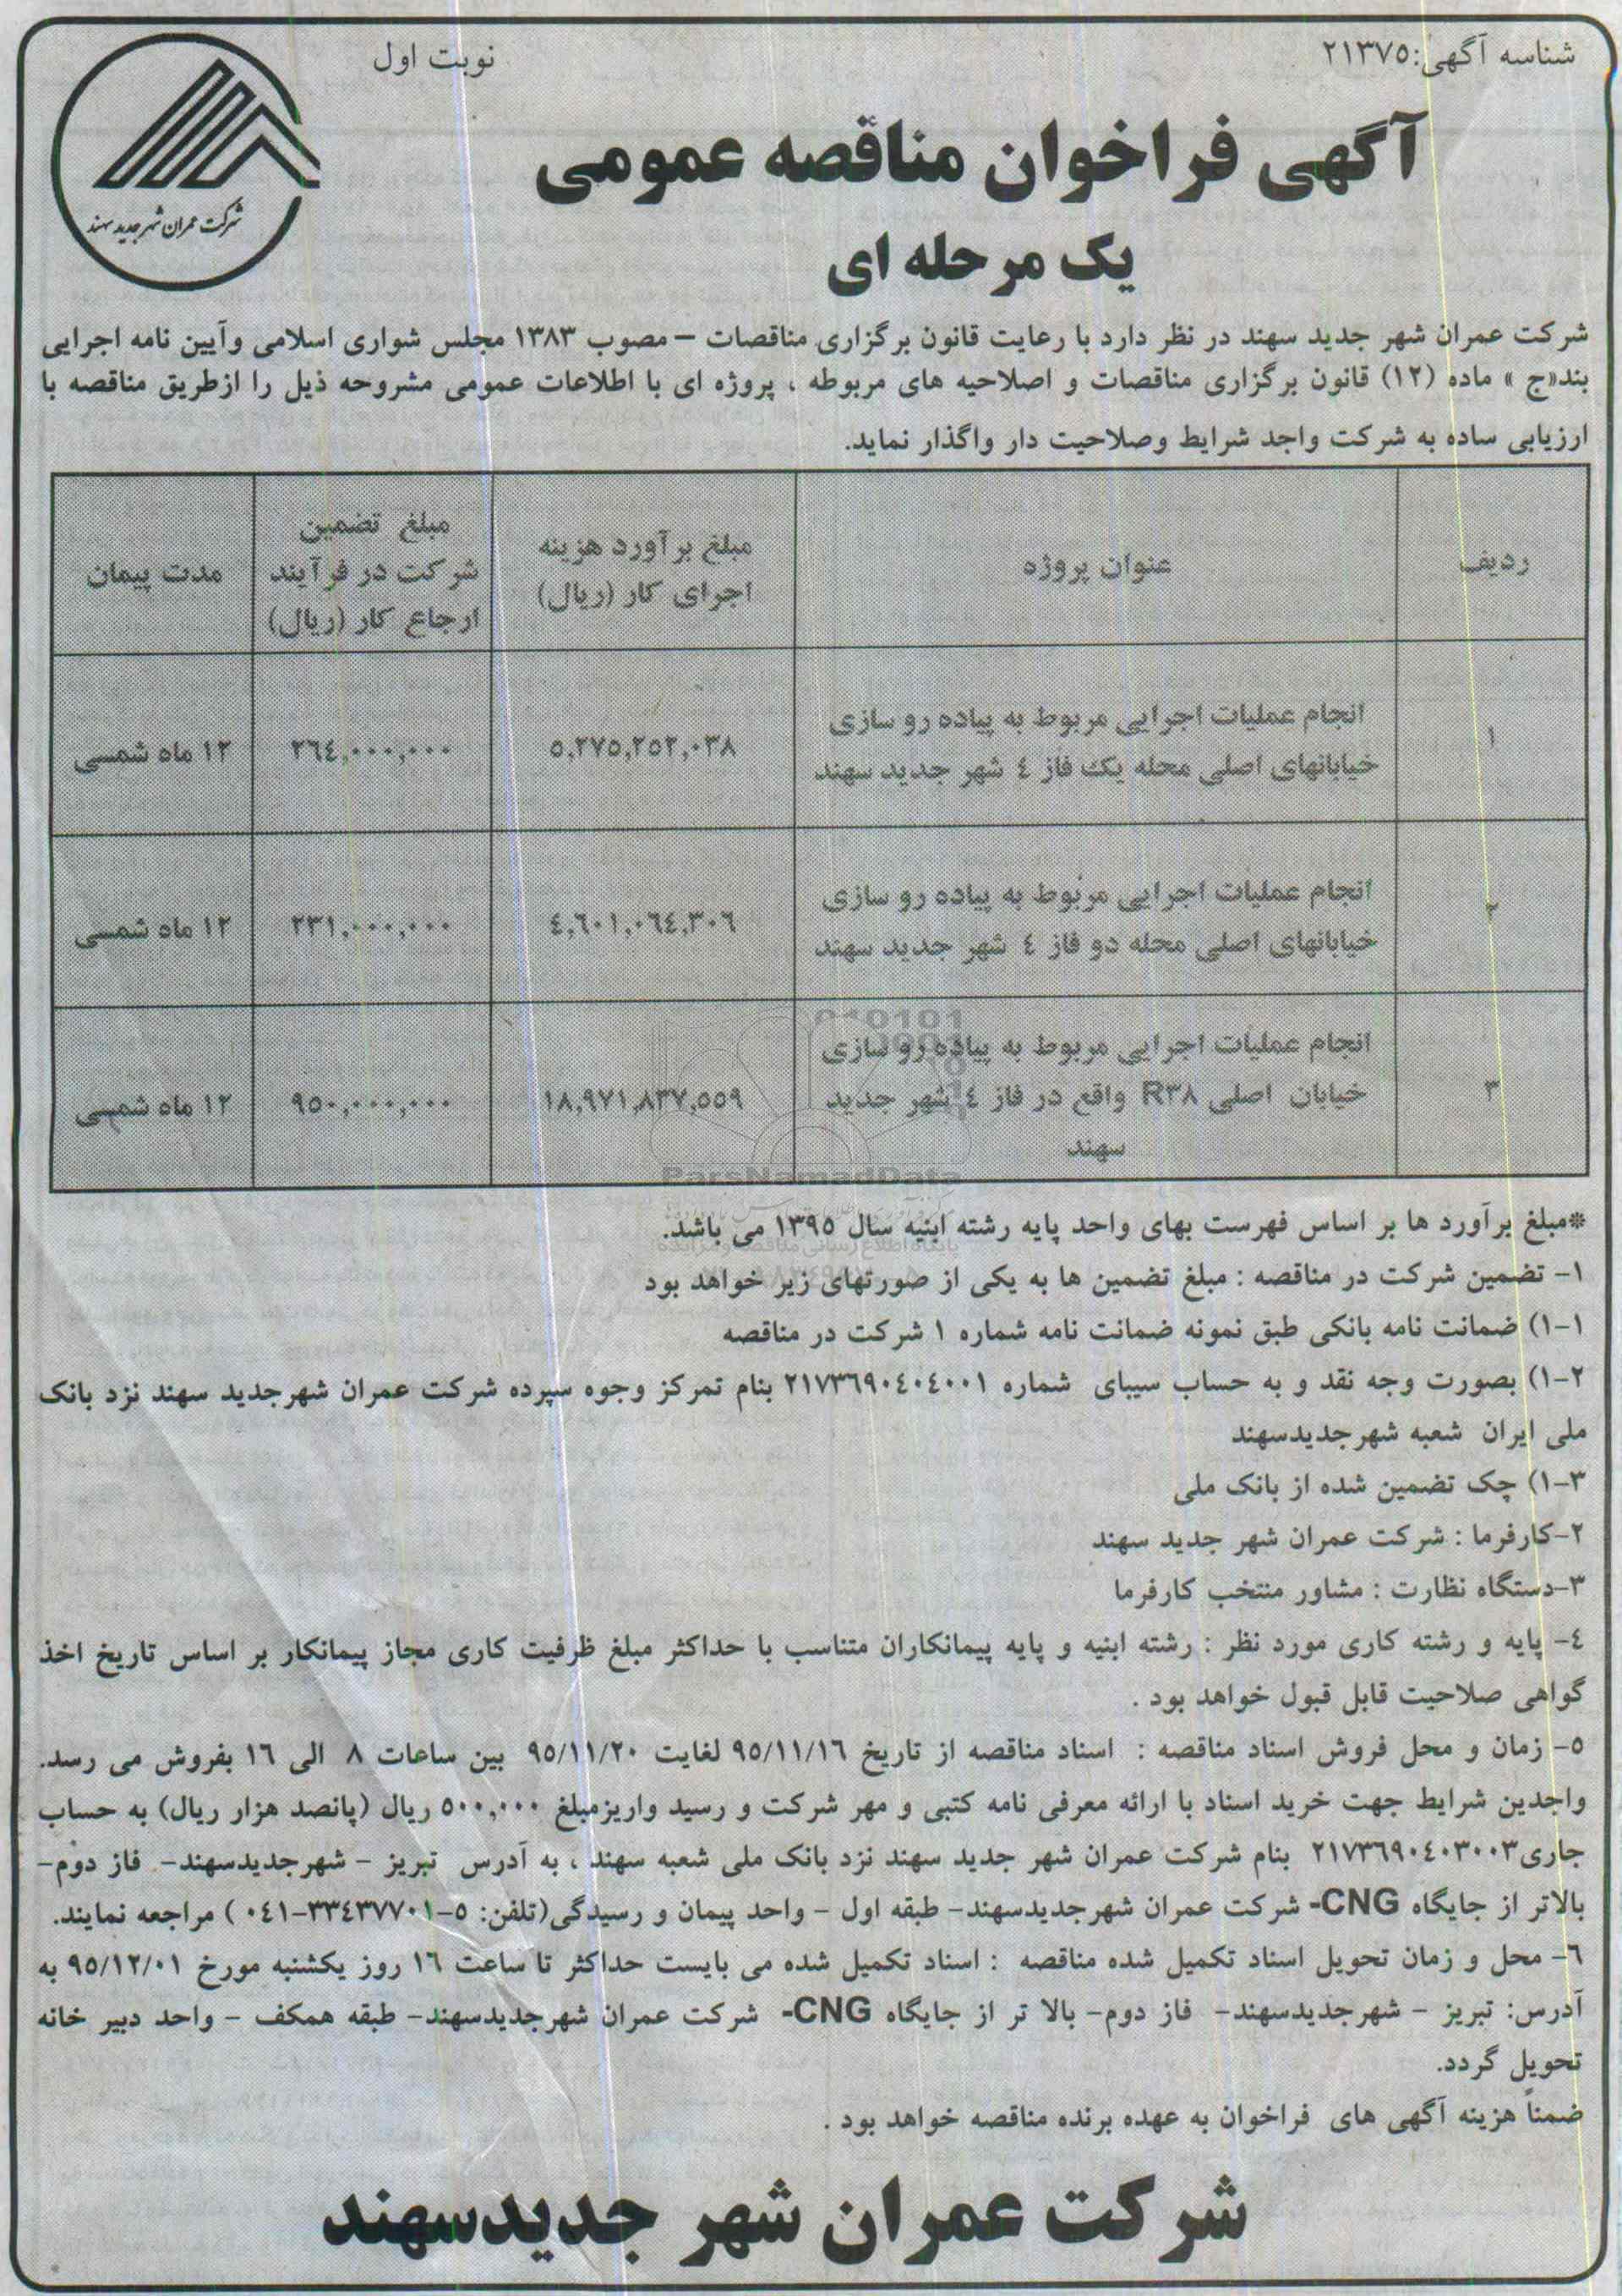 شناسه آگهی:۲۱۳۷۵
نوبت اول
شرکت عمران شهر جدید سهند
آگهی فراخوان مناقصه عمومی
یک مرحله ای
شرکت عمران شهر جدید سهند در نظر دارد با رعایت قانون برگزاری مناقصات – مصوب ۱۳۸۳ مجلس شواری اسلامی وآیین نامه اجرایی
بند«ج » ماده (۱۲) قانون برگزاری مناقصات و اصلاحیه های مربوطه ، پروژه ای با اطلاعات عمومی مشروحه ذیل را ازطریق مناقصه با
ارزیابی ساده به شرکت واجد شرایط وصلاحیت دار واگذار نماید.
ردیف
عنوان پروژه
مبلغ برآورد هزینه
اجرای کار (ریال)
مبلغ تضمین
شرکت در فرآیند
ارجاع کار (ریال)
مدت پیمان
۱
انجام عملیات اجرایی مربوط به پیاده رو سازی
خیابانهای اصلی محله یک فاز ٤ شهر جدید سهند
۵,۲۷۵,۲۵۲,۰۳۸
۲٦٤,۰۰۰,۰۰۰
۱۲ ماه شمسی
۲
انجام عملیات اجرایی مربوط به پیاده رو سازی
خیابانهای اصلی محله دو فاز ٤ شهر جدید سهند
٤,٦۰۱,۰٦٤,۳۰٦
۲۳۱,۰۰۰,۰۰۰
۱۲ ماه شمسی
۳
انجام عملیات اجرایی مربوط به پیاده رو سازی
خیابان اصلی R۳۸ واقع در فاز ٤ شهر جدید
سهند
۱۸,۹۷۱,۸۳۷,۵۵۹
۹۵۰,۰۰۰,۰۰۰
۱۲ ماه شمسی
ParsNamadData
*مبلغ برآورد ها بر اساس فهرست بهای واحد پایه رشته ابنیه سال ۱۳۹۵ می باشد.
پایگاه اطلاع رسانی مناقصه و مزایده
۱- تضمین شرکت در مناقصه : مبلغ تضمین ها به یکی از صورتهای زیر خواهد بود
۱-۱) ضمانت نامه بانکی طبق نمونه ضمانت نامه شماره ۱ شرکت در مناقصه
۱-۲) بصورت وجه نقد و به حساب سیبای شماره ۲۱۷۳٦۹۰٤۰٤۰۰۱ بنام تمرکز وجوه سپرده شرکت عمران شهرجدید سهند نزد بانک
ملی ایران شعبه شهرجدیدسهند
۱-۳) چک تضمین شده از بانک ملی
۲-کارفرما : شرکت عمران شهر جدید سهند
۳-دستگاه نظارت : مشاور منتخب کارفرما
٤- پایه و رشته کاری مورد نظر : رشته ابنیه و پایه پیمانکاران متناسب با حداکثر مبلغ ظرفیت کاری مجاز پیمانکار بر اساس تاریخ اخذ
گواهی صلاحیت قابل قبول خواهد بود .
۵- زمان و محل فروش اسناد مناقصه : اسناد مناقصه از تاریخ ۹۵/۱۱/۱٦ لغایت ۹۵/۱۱/۲۰ بین ساعات ۸ الی ۱٦ بفروش می رسد.
واجدین شرایط جهت خرید اسناد با ارائه معرفی نامه کتبی و مهر شرکت و رسید واریزمبلغ ۵۰۰,۰۰۰ ریال (پانصد هزار ریال) به حساب
جاری۲۱۷۳٦۹۰٤۰۳۰۰۳ بنام شرکت عمران شهر جدید سهند نزد بانک ملی شعبه سهند ، به آدرس تبریز - شهرجدیدسهند- فاز دوم-
بالاتر از جایگاه CNG- شرکت عمران شهرجدیدسهند- طبقه اول - واحد پیمان و رسیدگی(تلفن: ۵-۳۳٤۳۷۷۰۱-۰٤۱ ) مراجعه نمایند.
٦- محل و زمان تحویل اسناد تکمیل شده مناقصه : اسناد تکمیل شده می بایست حداکثر تا ساعت ۱٦ روز یکشنبه مورخ ۹۵/۱۲/۰۱ به
آدرس: تبریز - شهرجدیدسهند- فاز دوم- بالا تر از جایگاه CNG- شرکت عمران شهرجدیدسهند- طبقه همکف - واحد دبیر خانه
تحویل گردد.
ضمناً هزینه آگهی های فراخوان به عهده برنده مناقصه خواهد بود .
شرکت عمران شهر جدیدسهند